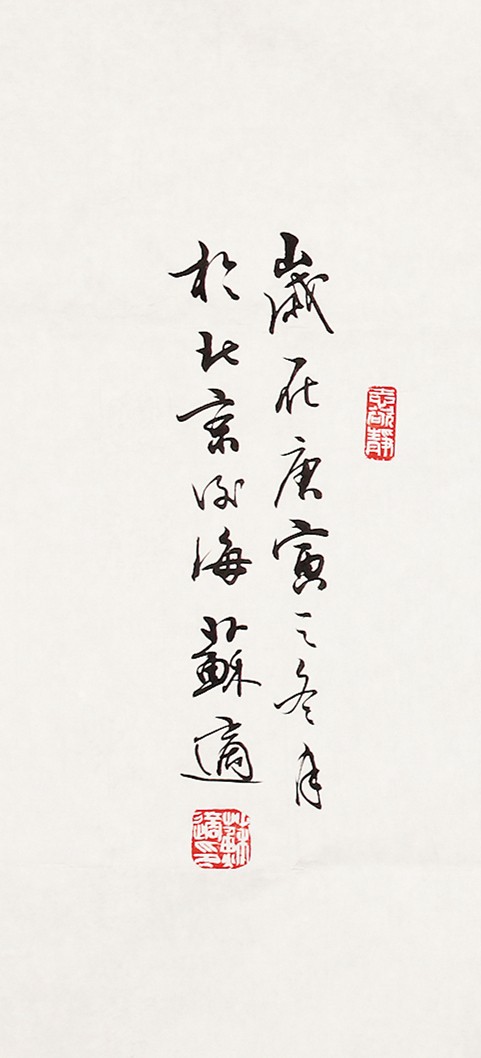 志欲靜
歲在庚寅之冬月
於北京後海蘇適
蘇適之印